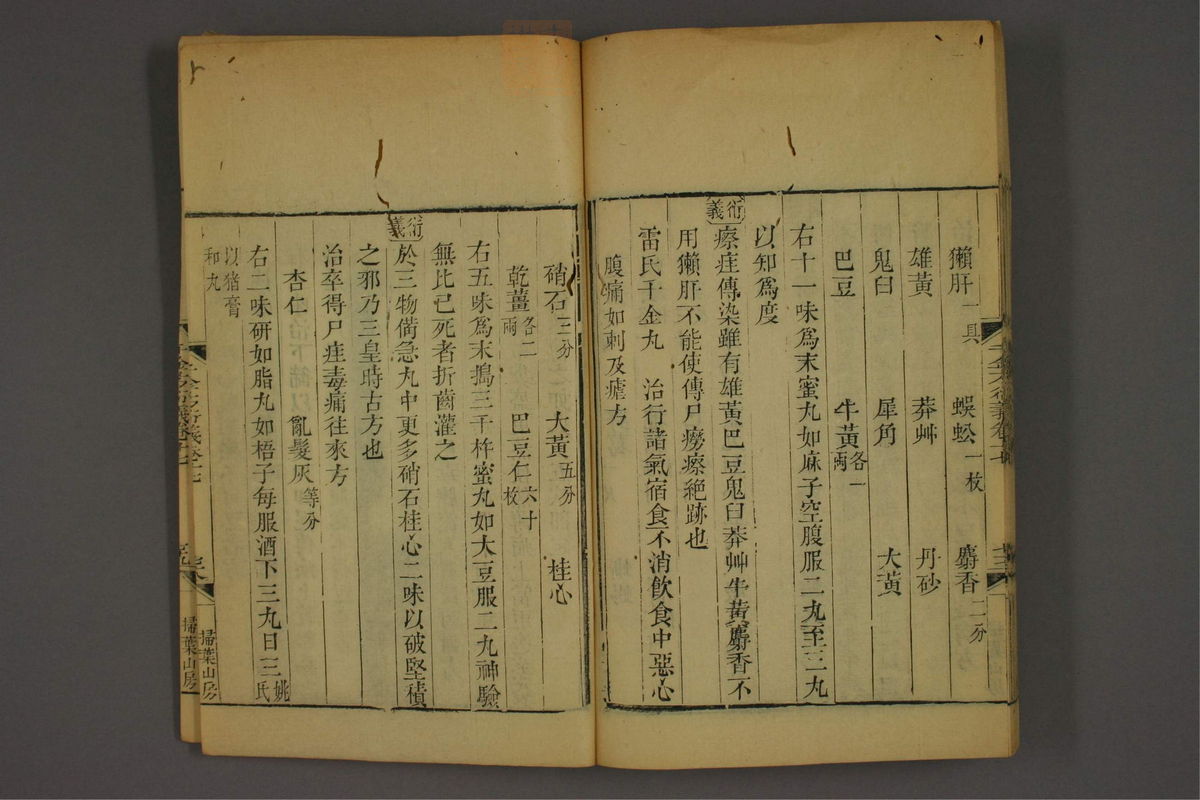 獺肝一具 蜈蚣一枚 麝香二分
雄黃 莽艸 丹砂
鬼臼 犀角 大黃
巴豆 牛黃各一兩
右十一味爲末蜜丸如麻子空腹服二丸至三丸
以知爲度
衍義
瘵疰傳染雖有雄黃巴豆鬼臼莽艸牛黃麝香不
用獺肝不能使傳尸癆瘵絕跡也
雷氏千金丸 治行諸氣宿食不消飲食中惡心
腹痛如刺及瘧方
硝石三分 大黃五分 桂心
乾薑各二兩 巴豆仁六十枚
右五味爲末搗三千杵蜜丸如大豆服二丸神驗
無比已死者折齒灌之
衍義
於三物備急丸中更多硝石桂心二味以破堅積
之邪乃三皇時古方也
治卒得尸疰毒痛往來方
杏仁 亂髮灰等分
右二味研如脂丸如梧子每服酒下三丸日三姚氏
以猪膏和丸
掃葉山房
掃葉山房